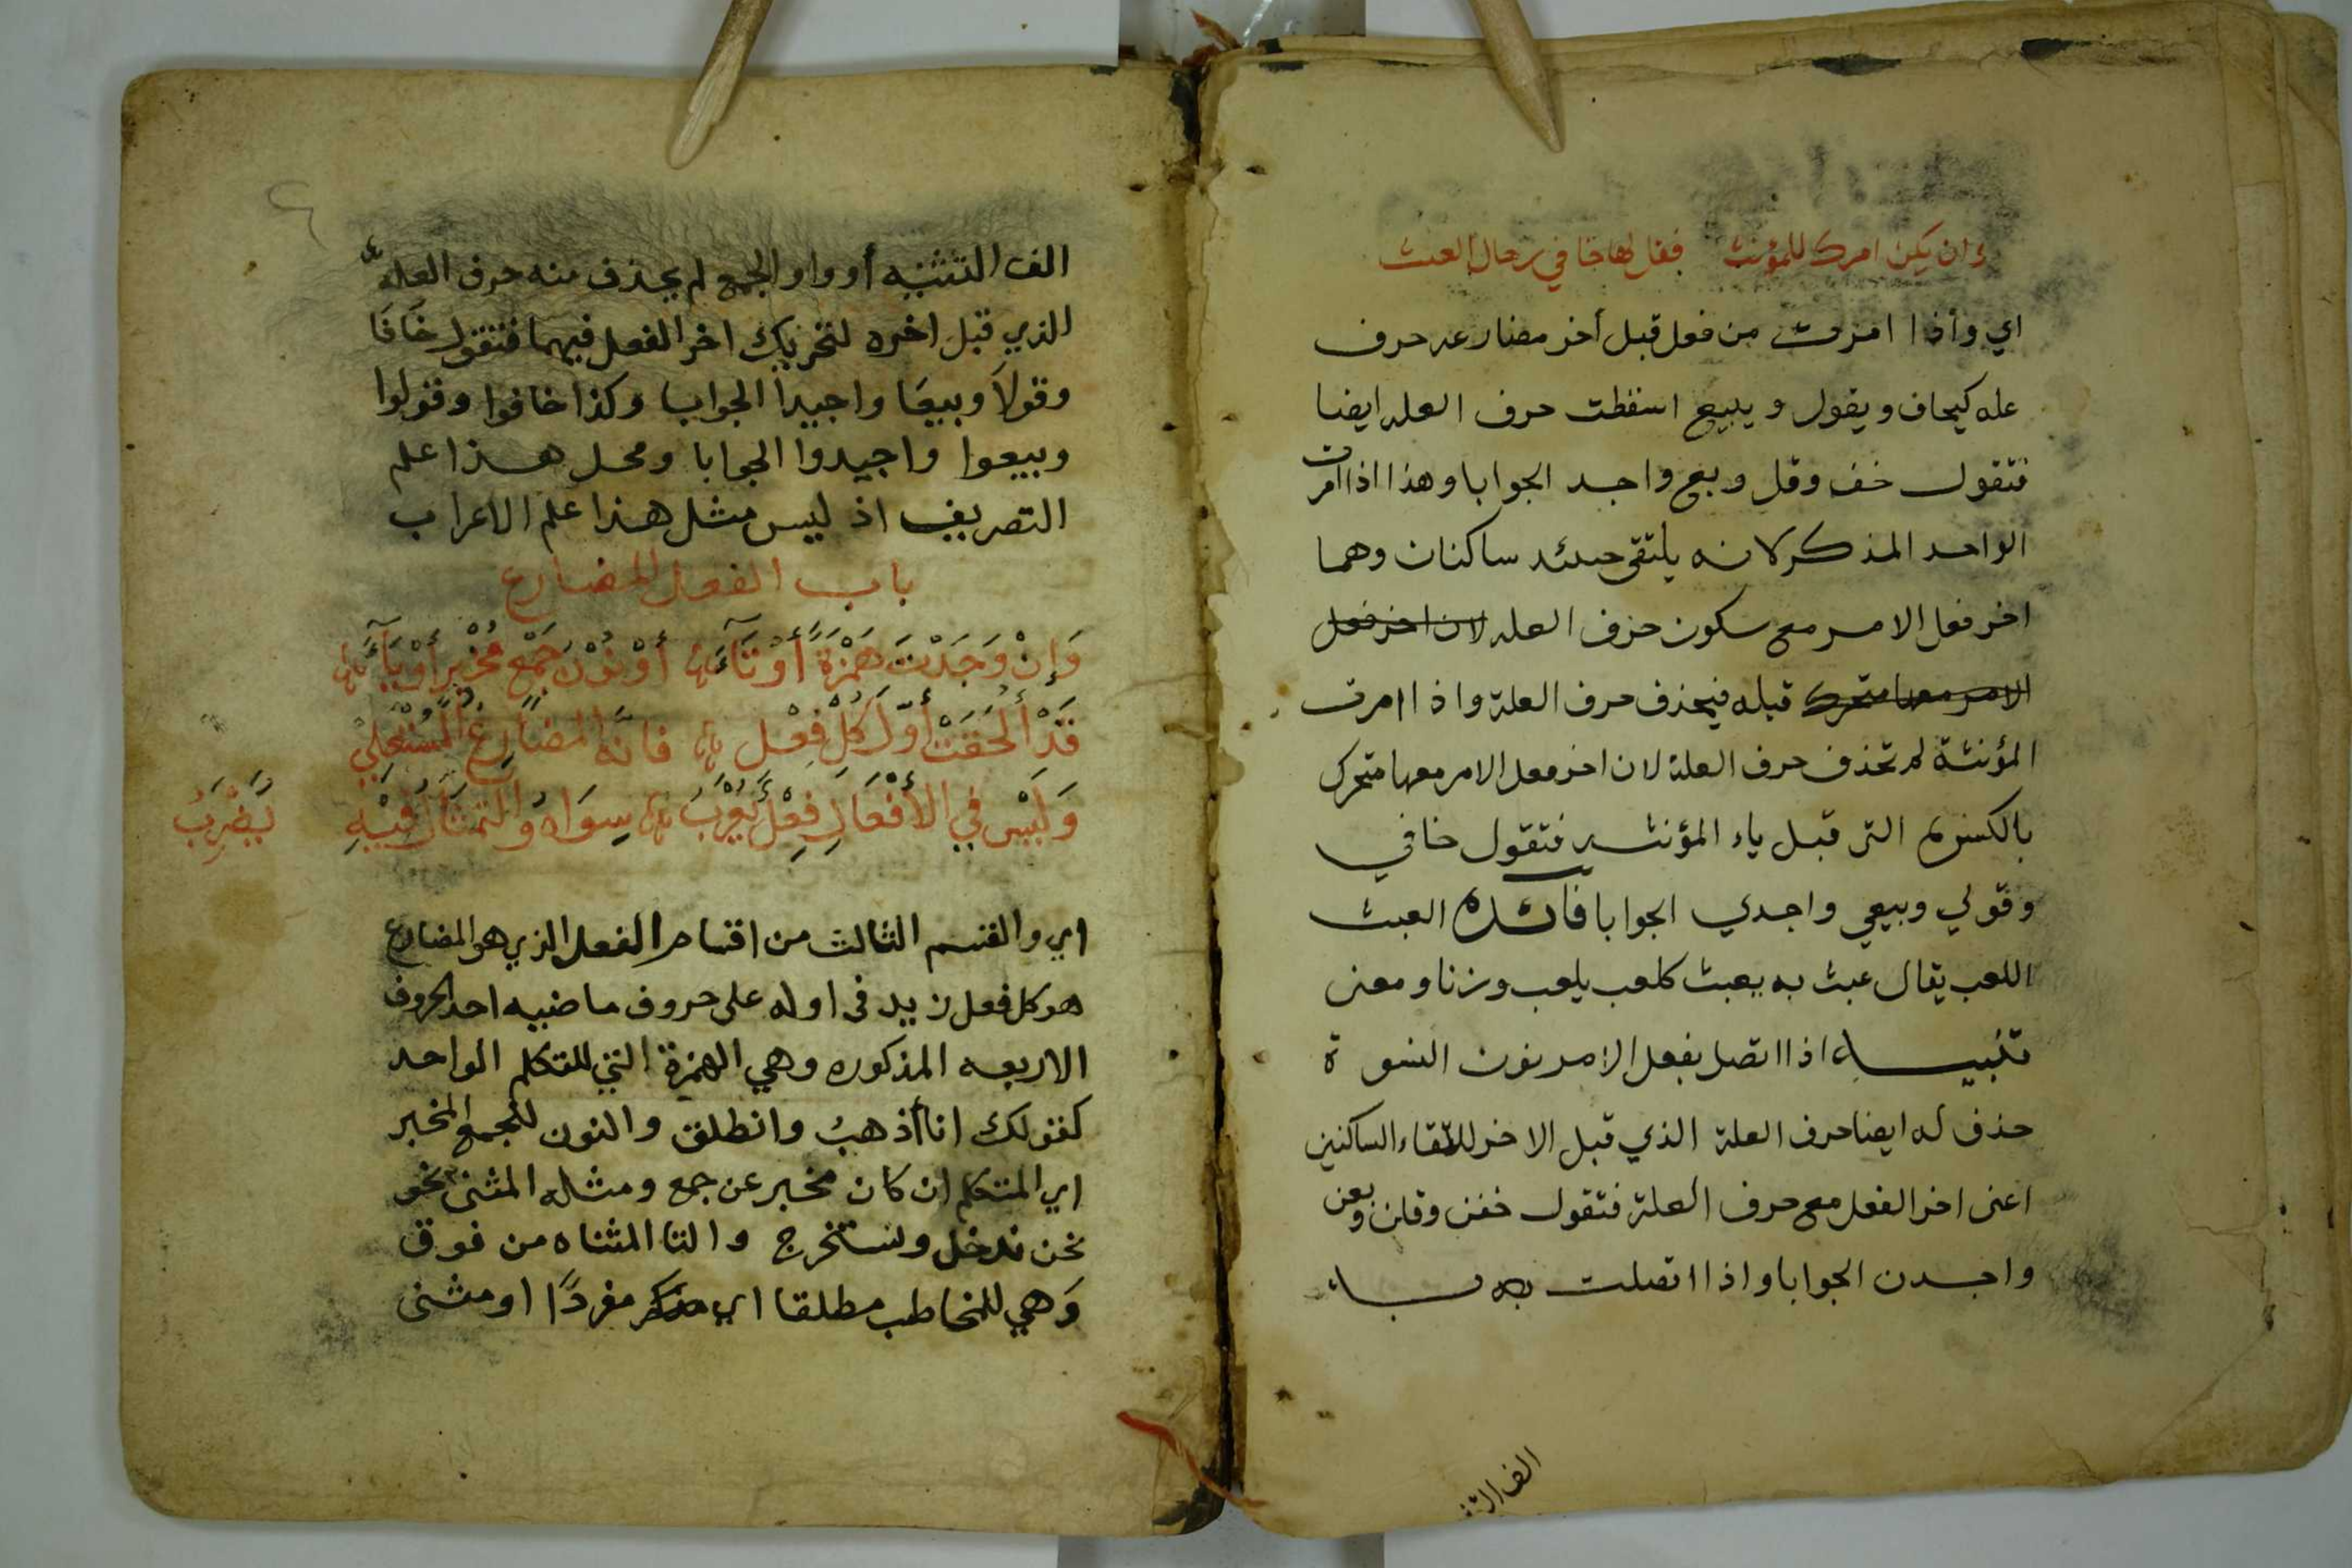 وان يكن امرك للمؤنث فقل لها خافي رجال العبث
اي واذا امرت من فعل قبل أخر مضارعه حرف
عله كيخاف ويقول ويبيع اسقطت حرف العله ايضا
فتقول خف وقل وبع واجد الجوابا وهذا اذا امرت
الواحد المذكر لانه يلتقى حينئذ ساكنان وهما
اخر فعل الامر مع سكون حرف العله لان اخر فعل
الامر معها متحرك قبله فيحذف حرف العلة واذا امرت
المؤنثة لم تحذف حرف العلة لان اخر فعل الامر معها متحرك
بالكسرة التى قبل ياء المؤنث فتقول خافي
وقولي وبيعي واجدي الجوابا فائدة العبث
اللعب يقال عبث به يعبث كلعب يلعب وزنا ومعنى
تنبيه اذا اتصل بفعل الامر نون النسوة
حذف له ايضا حرف العلة الذي قبل الاخر للالتقاء الساكنين
اعنى اخر الفعل مع حرف العلة فتقول خفن وقلن وبعن
واجدن الجوابا واذا اتصلت به
الف التث
الف التثنيه أو واو الجمع لم يحذف منه حرف العلة
الذي قبل اخره لتحريك اخر الفعل فيهما فتقول خَافَا
وقولَا وبيعَا واجيدا الجوابا وكذا خافوا وقولوا
وبيعوا واجيدوا الجوابا ومحل هذا علم
التصريف اذ ليس مثل هذا علم الاعراب
باب الفعل المضارع
وَإِنْ وَجَدْتَ هَمْزَةً أَوْ تَآءَ أَوْ نُوْنَ جَمْعٍ مُخْبِرٍ أَوْ يَآءَ
قَدْ أُلْحِقَتْ أَوَّلَ كُلِّ فِعْلِ فَانَّهُ المُضَارِعُ المُسْتَعْلِيْ
وَلَيْسَ فِي الأَفْعَالِ فِعْلٌ يُعْرَبُ سِوَاهُ وَالتِمْثَالُ فِيْهِ يَضْرِبُ
اي والقسم الثالث من اقسام الفعل الذي هو المضارع
هو كل فعل زيد فى اوله على حروف ماضيه احد الحروف
الاربعه المذكوره وهي الهمزة التي للمتكلم الواحد
كقولك انا أذهبُ وانطلق والنون للجمع المخبر
اي المتكلم ان كان مخبر عن جمع ومثله المثنى نحو
نحن ندخل ونستخرج والتا المثناه من فوق
وَهي للمخاطب مطلقا اي مذكر مفردًا او مثنى